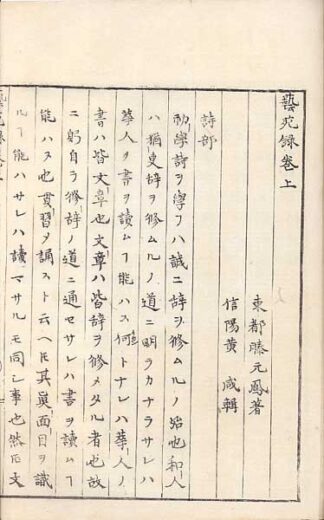 藝苑録巻上
東都滕元鳳著
信陽黄 咸輯
詩部
初學詩ヲ學フハ誠ニ辞ヲ修ムルノ始也和人
ハ猶更辞ヲ修ムルノ道ニ明ラカナラサレハ
華人ヲ書ヲ讀ムヿ能ハス何トナレハ華人ノ
書ハ皆文章也文章ハ皆辞ヲ修メタル者也故
ニ躬自ラ修辞ノ道ニ通セサレハ書ヲ讀ムヿ
能ハス也貫習メ誦スト云ヘ𪜈其眞面目ヲ識
ルヿ能ハサレハ讀マサルモ同シ事也然𪜈文